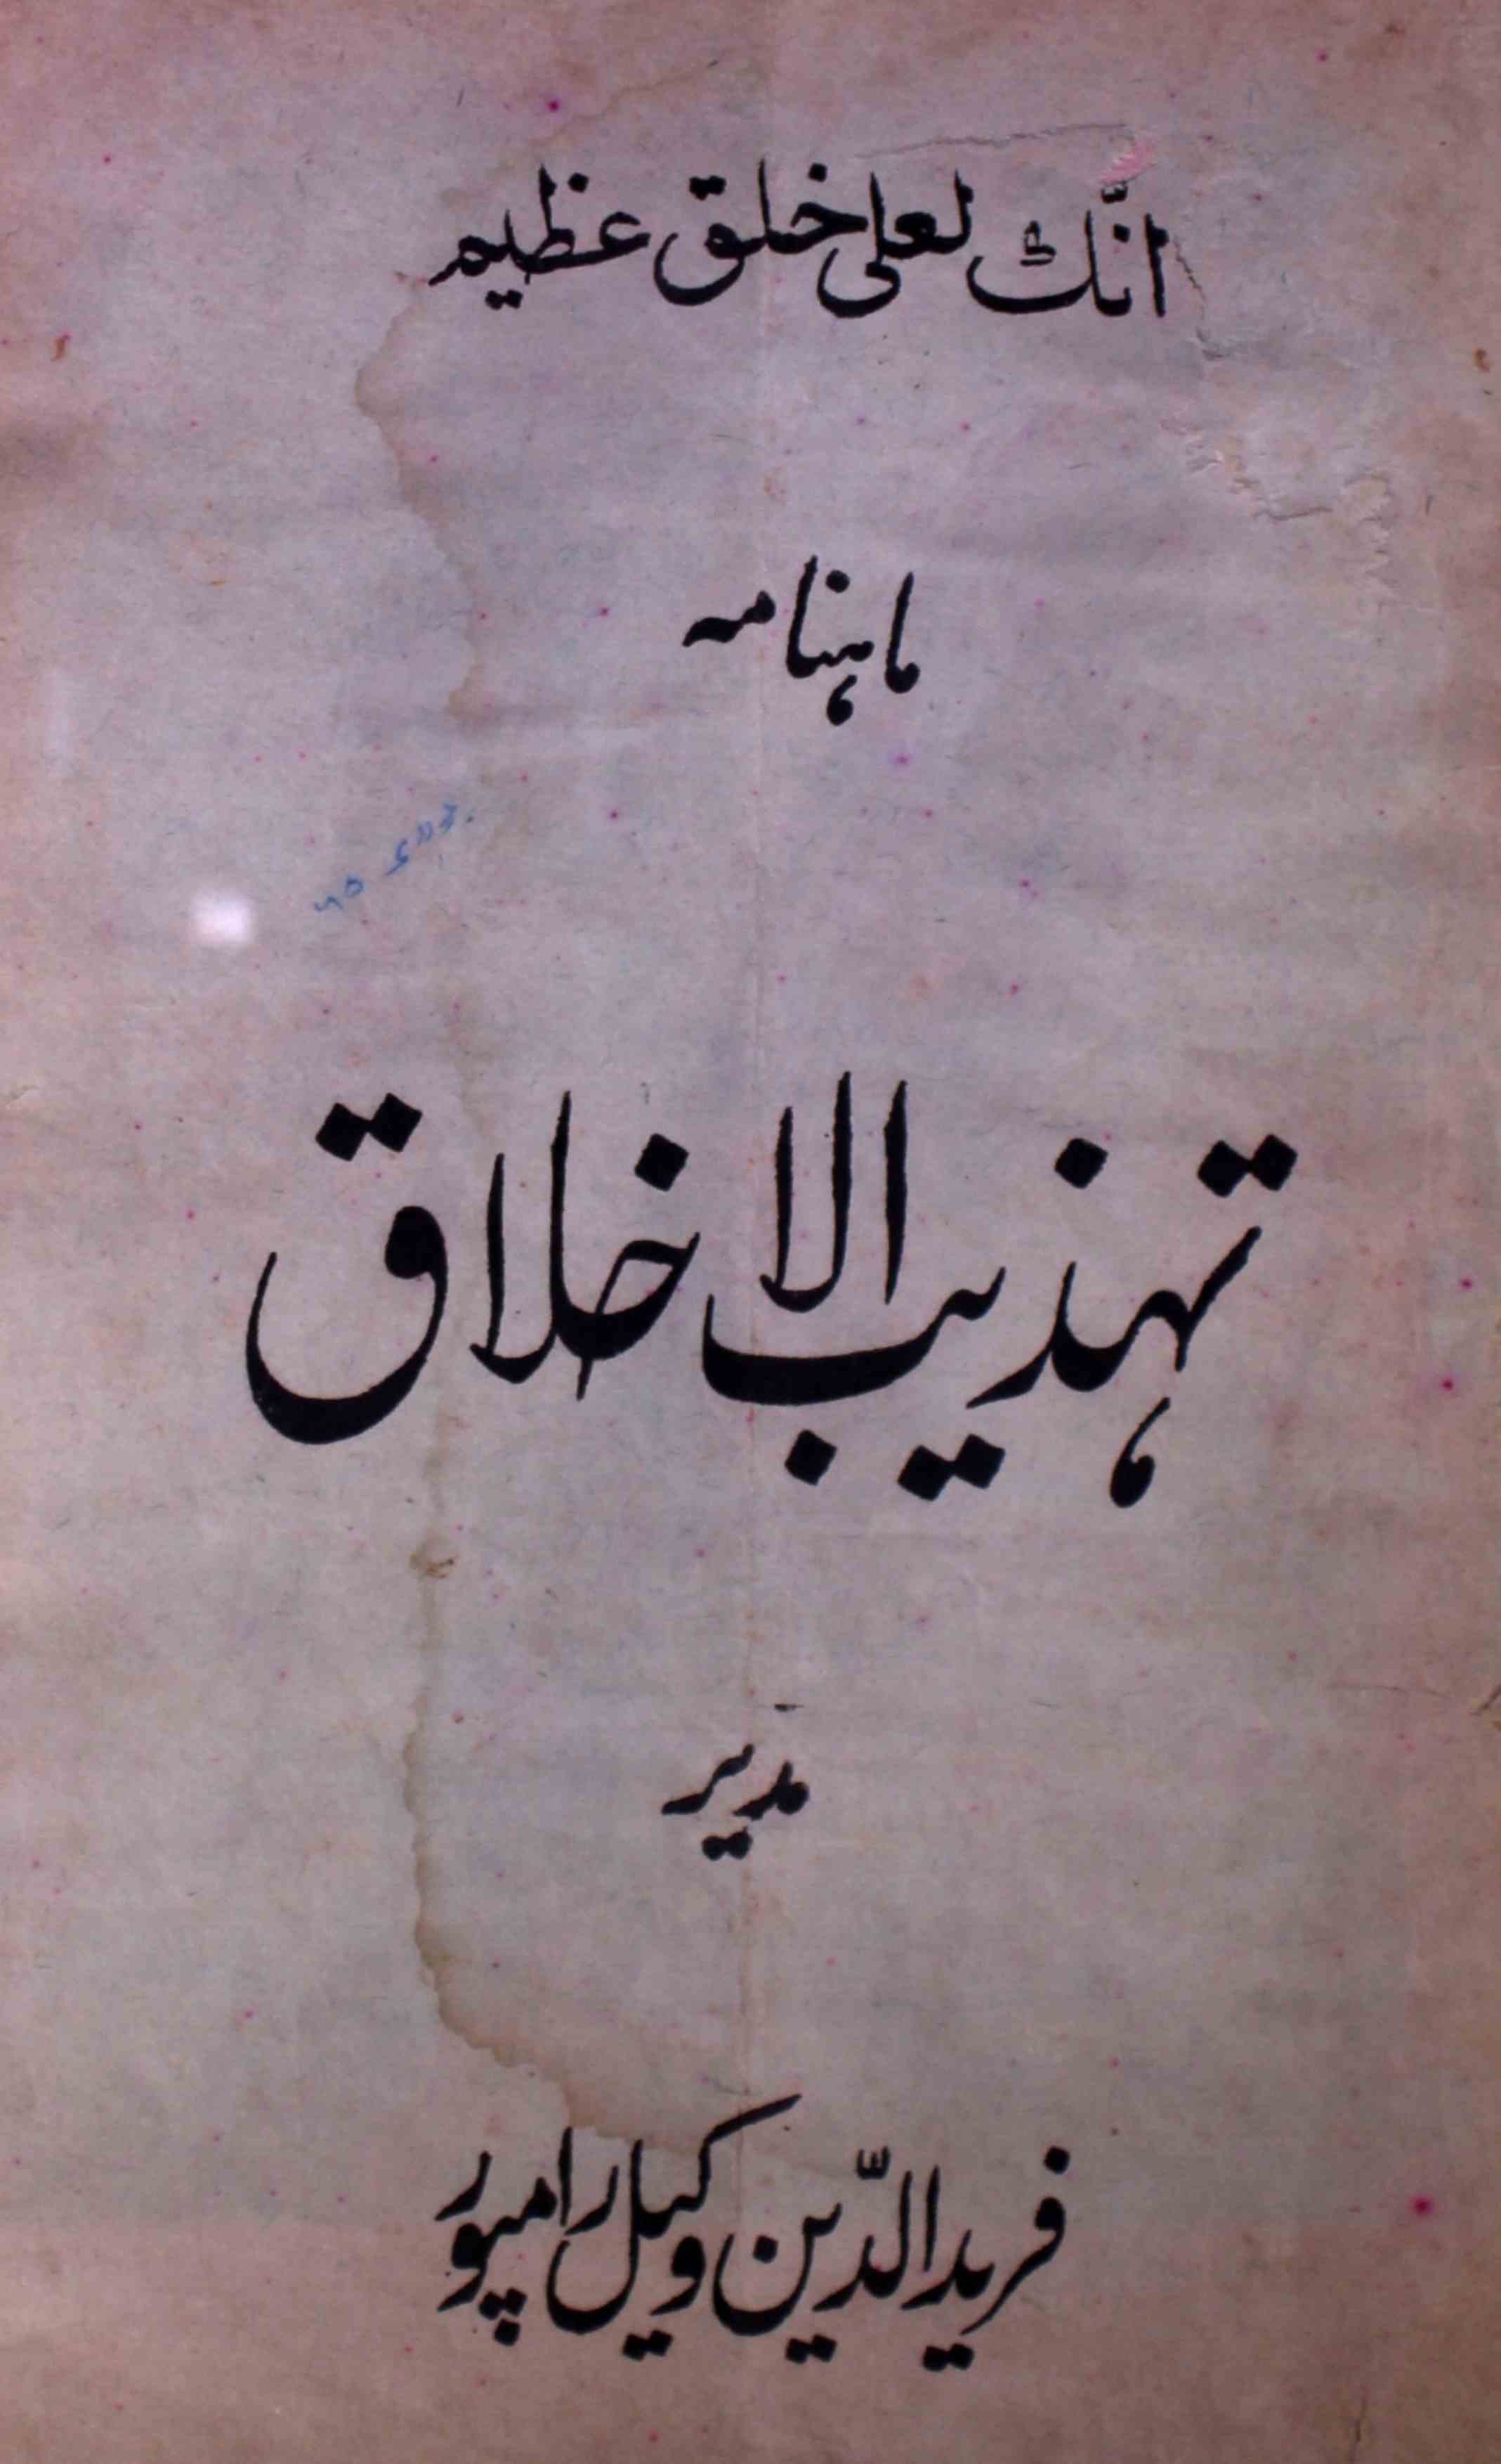 انّك لعلى خلق عظيم
ماہنامہ
تہذیب الاخلاق
مدیر
فرید الدّین وکیل رامپور